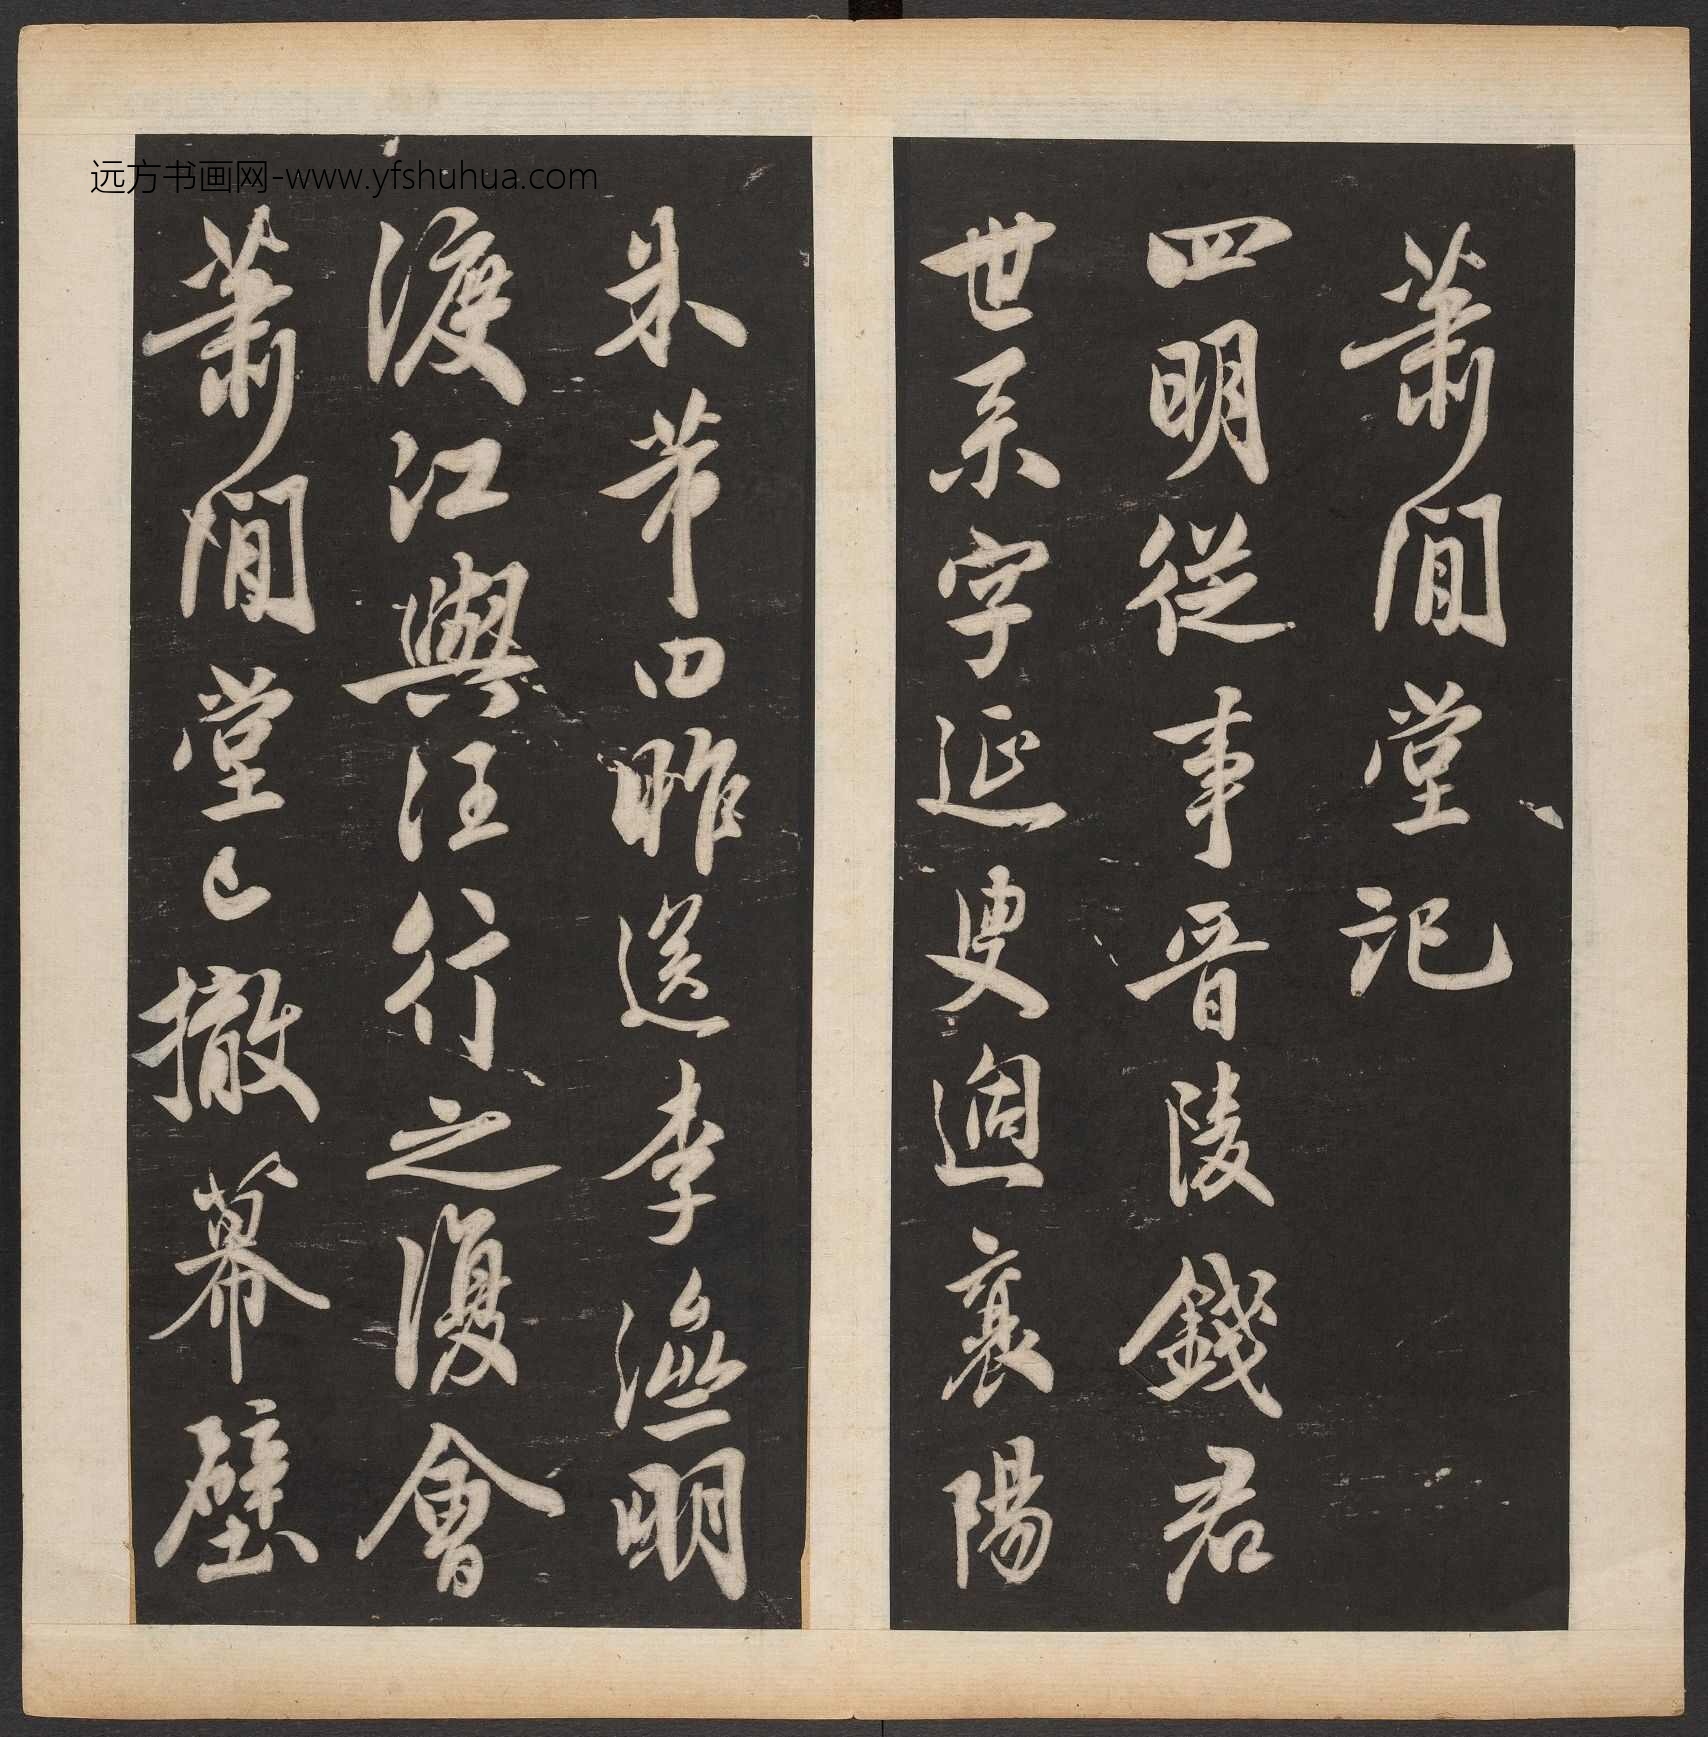 远方书画网-www.yfshuhua.com
萧閒堂記
四明從事晋陵錢君
世系字延叟過襄陽
米芾曰昨送李澁明
渡江與汪行之復會
萧閒堂已撤幕壁